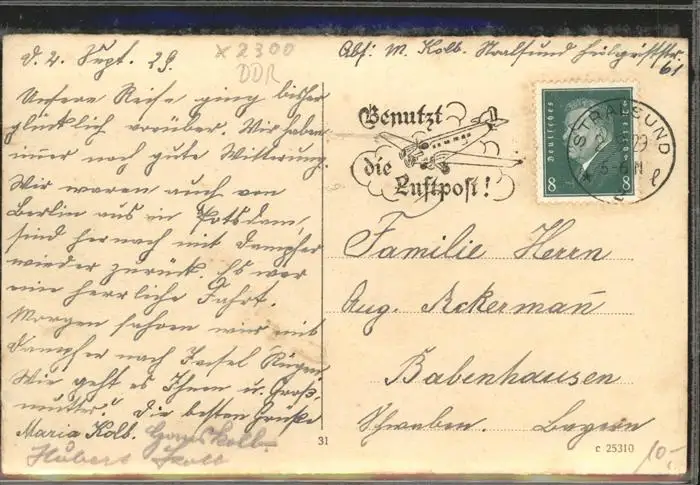 d. 2. Sept. 29.
x 2300
DDR
Unsere Reise ging bisher
glücklich vorüber. Wir haben
immer noch gute Witterung.
Wir waren auch von
Berlin aus in Potsdam,
sind hernach mit Dampfer
wieder zurück. Es war
eine herrliche Fahrt.
Morgen fahren wir mit
Dampfer nach Insel Rügen
Wie geht es Ihnen u. Groß-
mutter? Die besten Grüße
Maria Kolb. Hans Kolb
Hubert Kolb
Abs: M. Kolb. Stralsund Heilgeiststr.
61
Benutzt
die
Luftpost!
Deutsches Reich
8 8
STRALSUND
29
2 l
Familie Herrn
Aug. Ackermañ
Babenhausen
Schwaben. Bayern
31
c 25310
10-